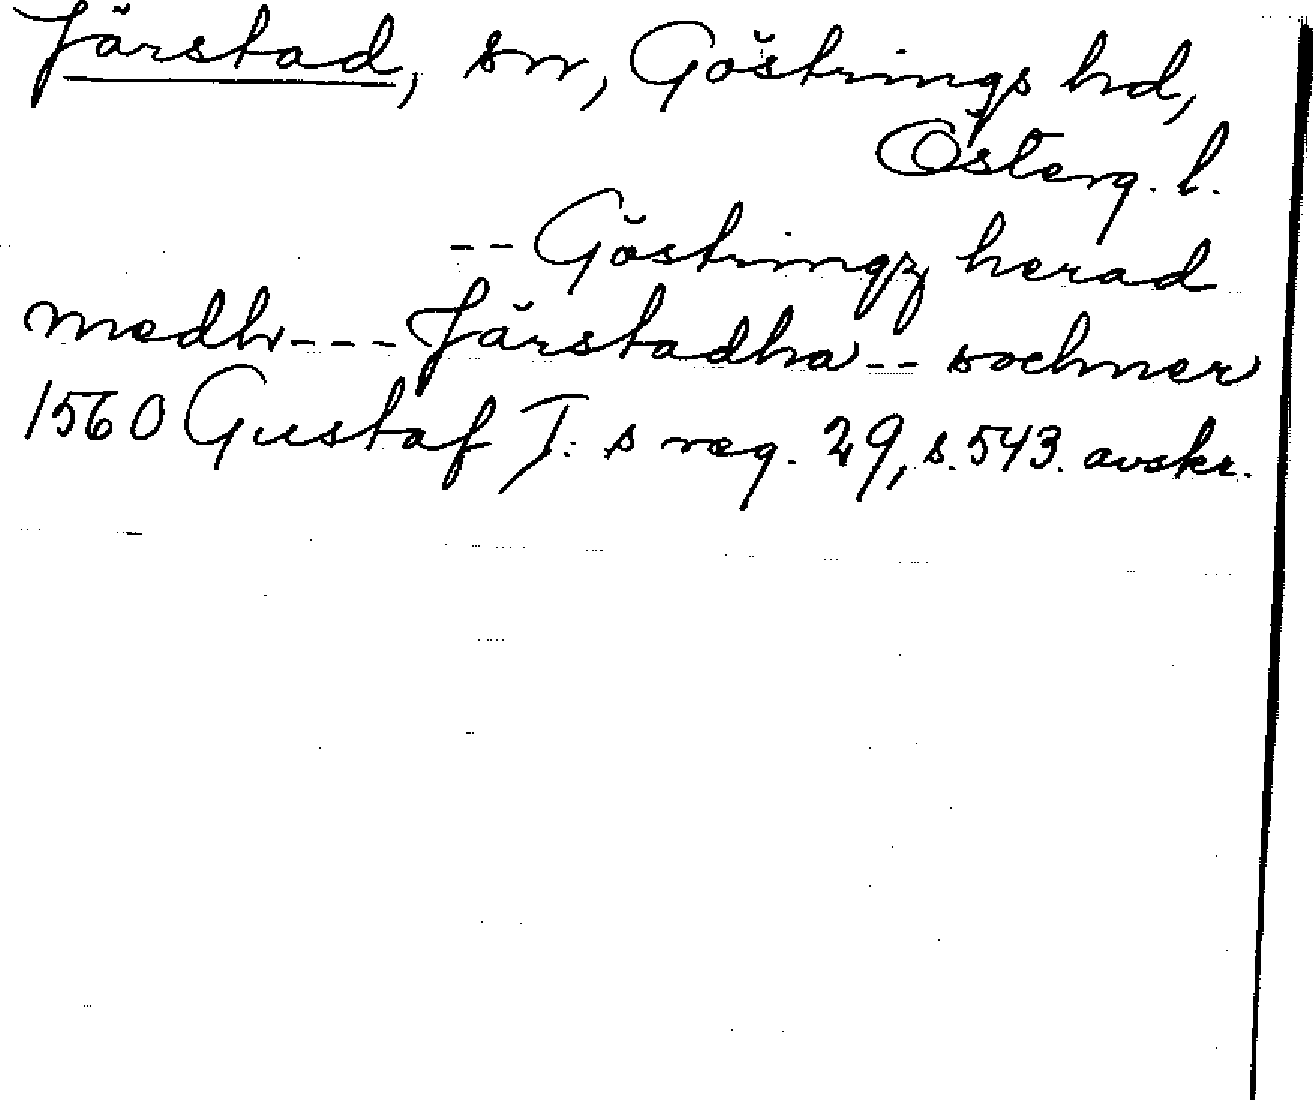 Järstad, sn, Göstrings hd,
Österg. l.
-- Göstringz herad
medh --- Järstadha -- sochner
1560 Gustaf I: s reg. 29, s. 543. avskr.